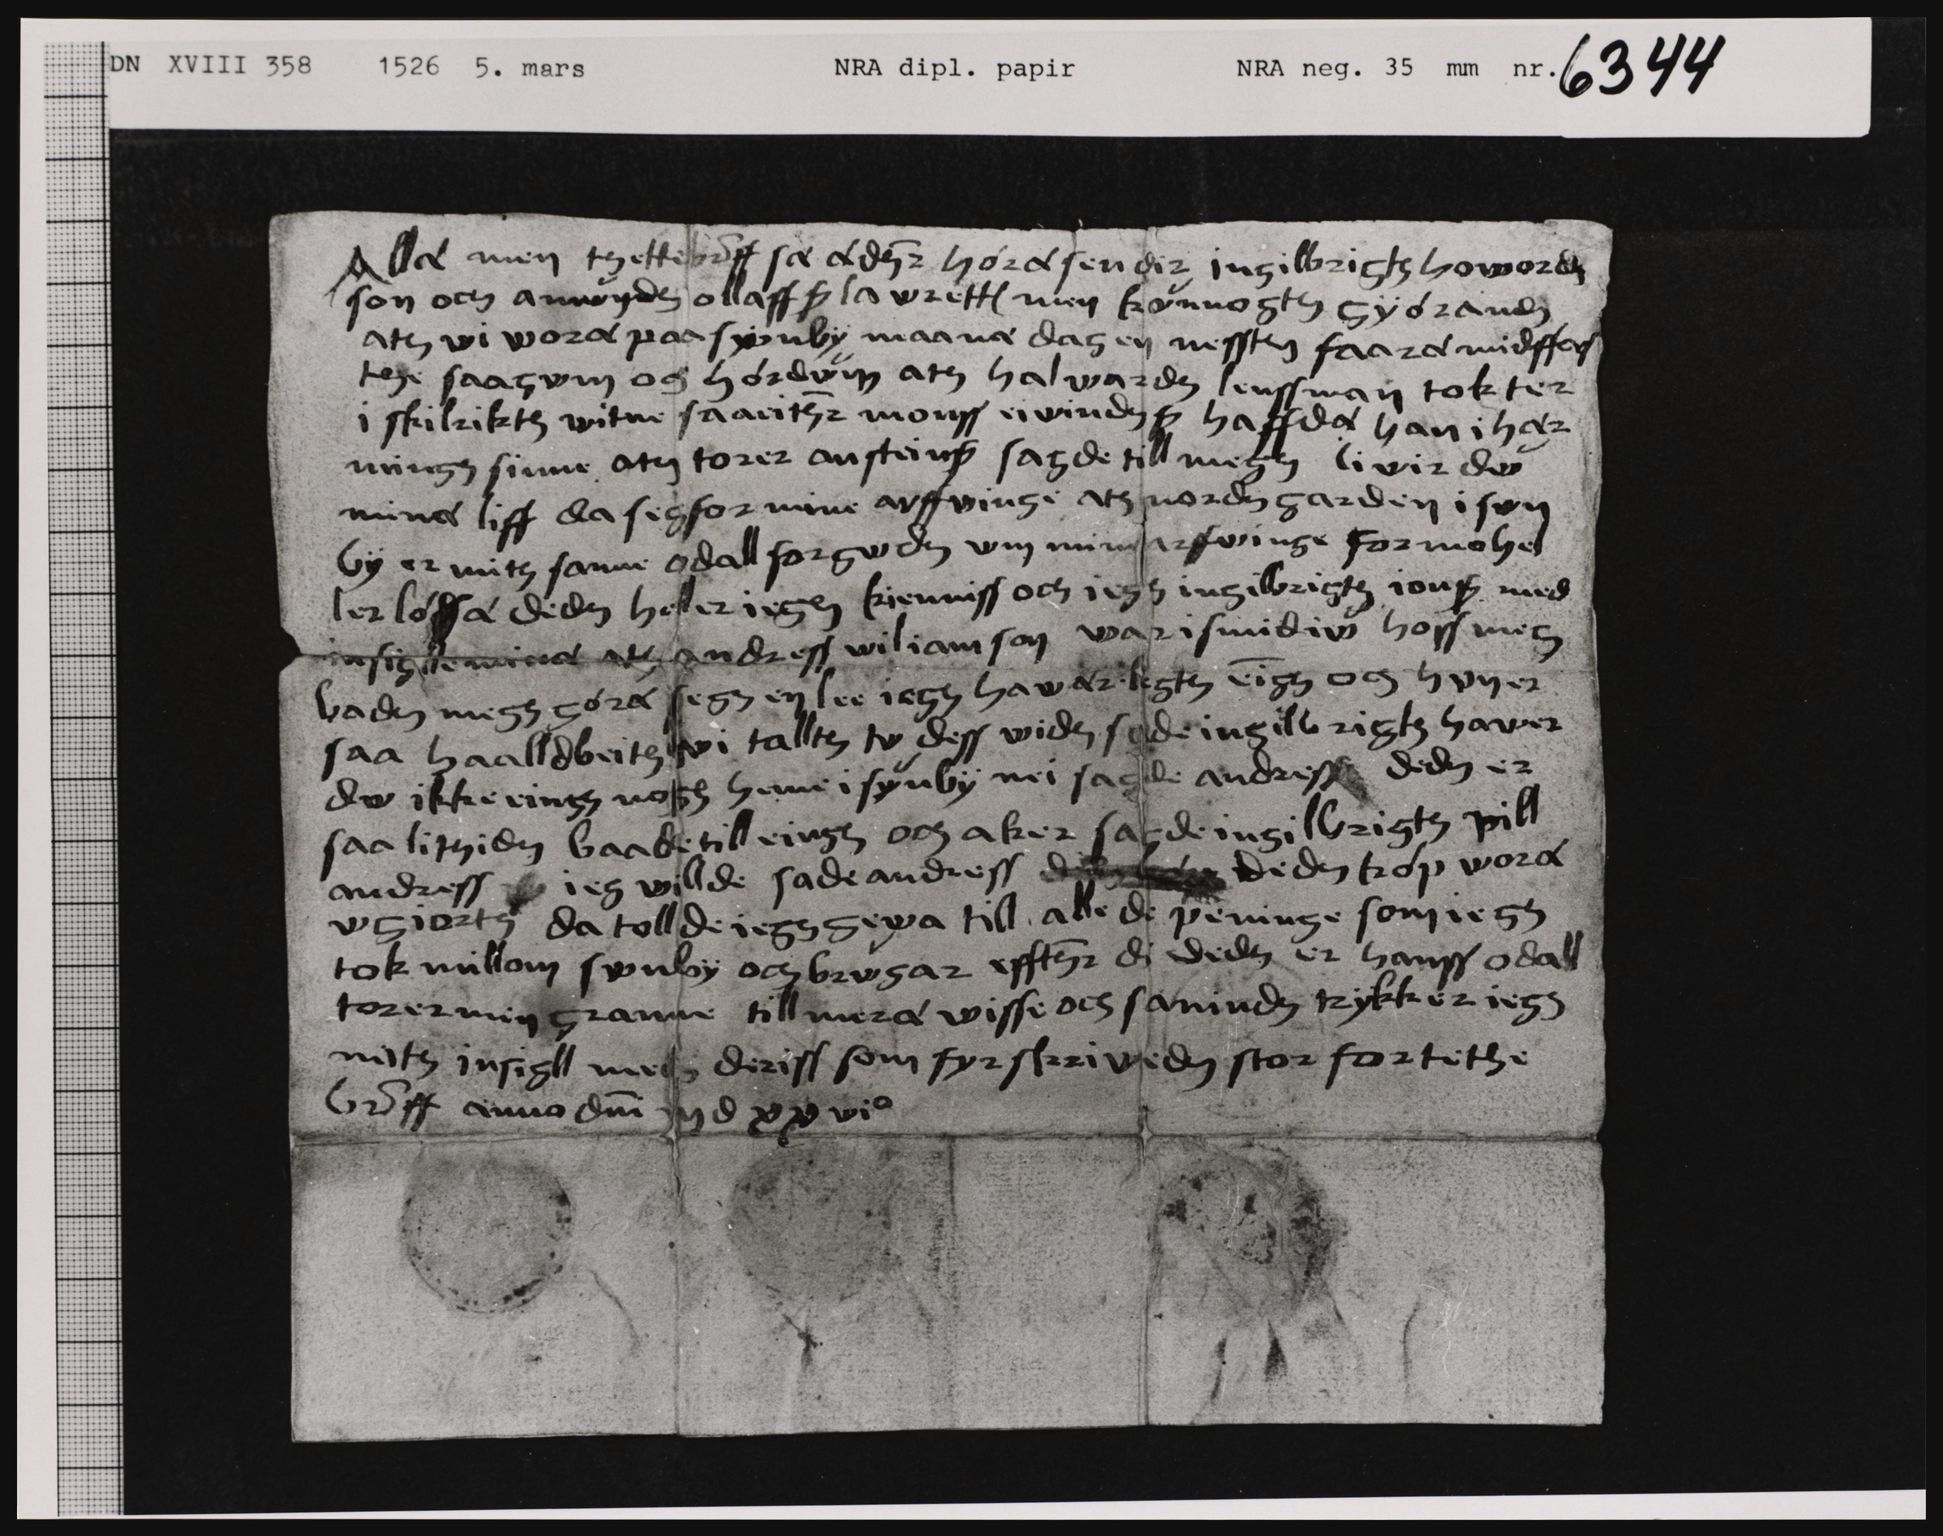 DN XVIII 358 1526 5. mars NRA dipl. papir NRA neg. 35 mm nr. 6344
Alla men thette brff sæ æder høræ sendir ingilbrigth howordz
son och anwndh ollaff lawrettis men kwnnogth gyørandh
ath wi woræ paa sywnby maana dagen nessthn faaræ midffas
the saagwm og hørdwm ath halwardh lenssman tok ter
i skilrikth witne saa eithr monss eivindh haffdæ han i hær
mingh sinne ath torer ansteins sagde till megh liwir dw
minæ liff da seg for mine arffvinge ath nordh garden i swn
by er mith sanne odall forgwdh wm mine arfwinge for mohel
ler løssæ dedh heler iegh kienniss och iegh ingilbrigth ions med
insigle minæ ath andress wiliamson war i smidiw hoss meg
badh megh gøræ segh en lee iegh hawær legth eigh och hwn er
saa haalldbeith wi tallth tw dess widh sade ingilbrigth hawer
dw ikke eingh nogh heme i synby nei sagde andress dedh er
saa lithidh baade till eingh och aker sagde ingilbrigth pill
andress ieg willde sade andress dedh køp woræ
wgiorth da tolldeiegh gewa till alle de peninge som iegh
tok millom swnby och brwgar effthr di dedh er hanss odall
torer min granne till meræ wisse och sanindh trykker iegh
mith insigll medh deriss som fyr skriwedh stor for tethe
brff anno dm m d xx vi°